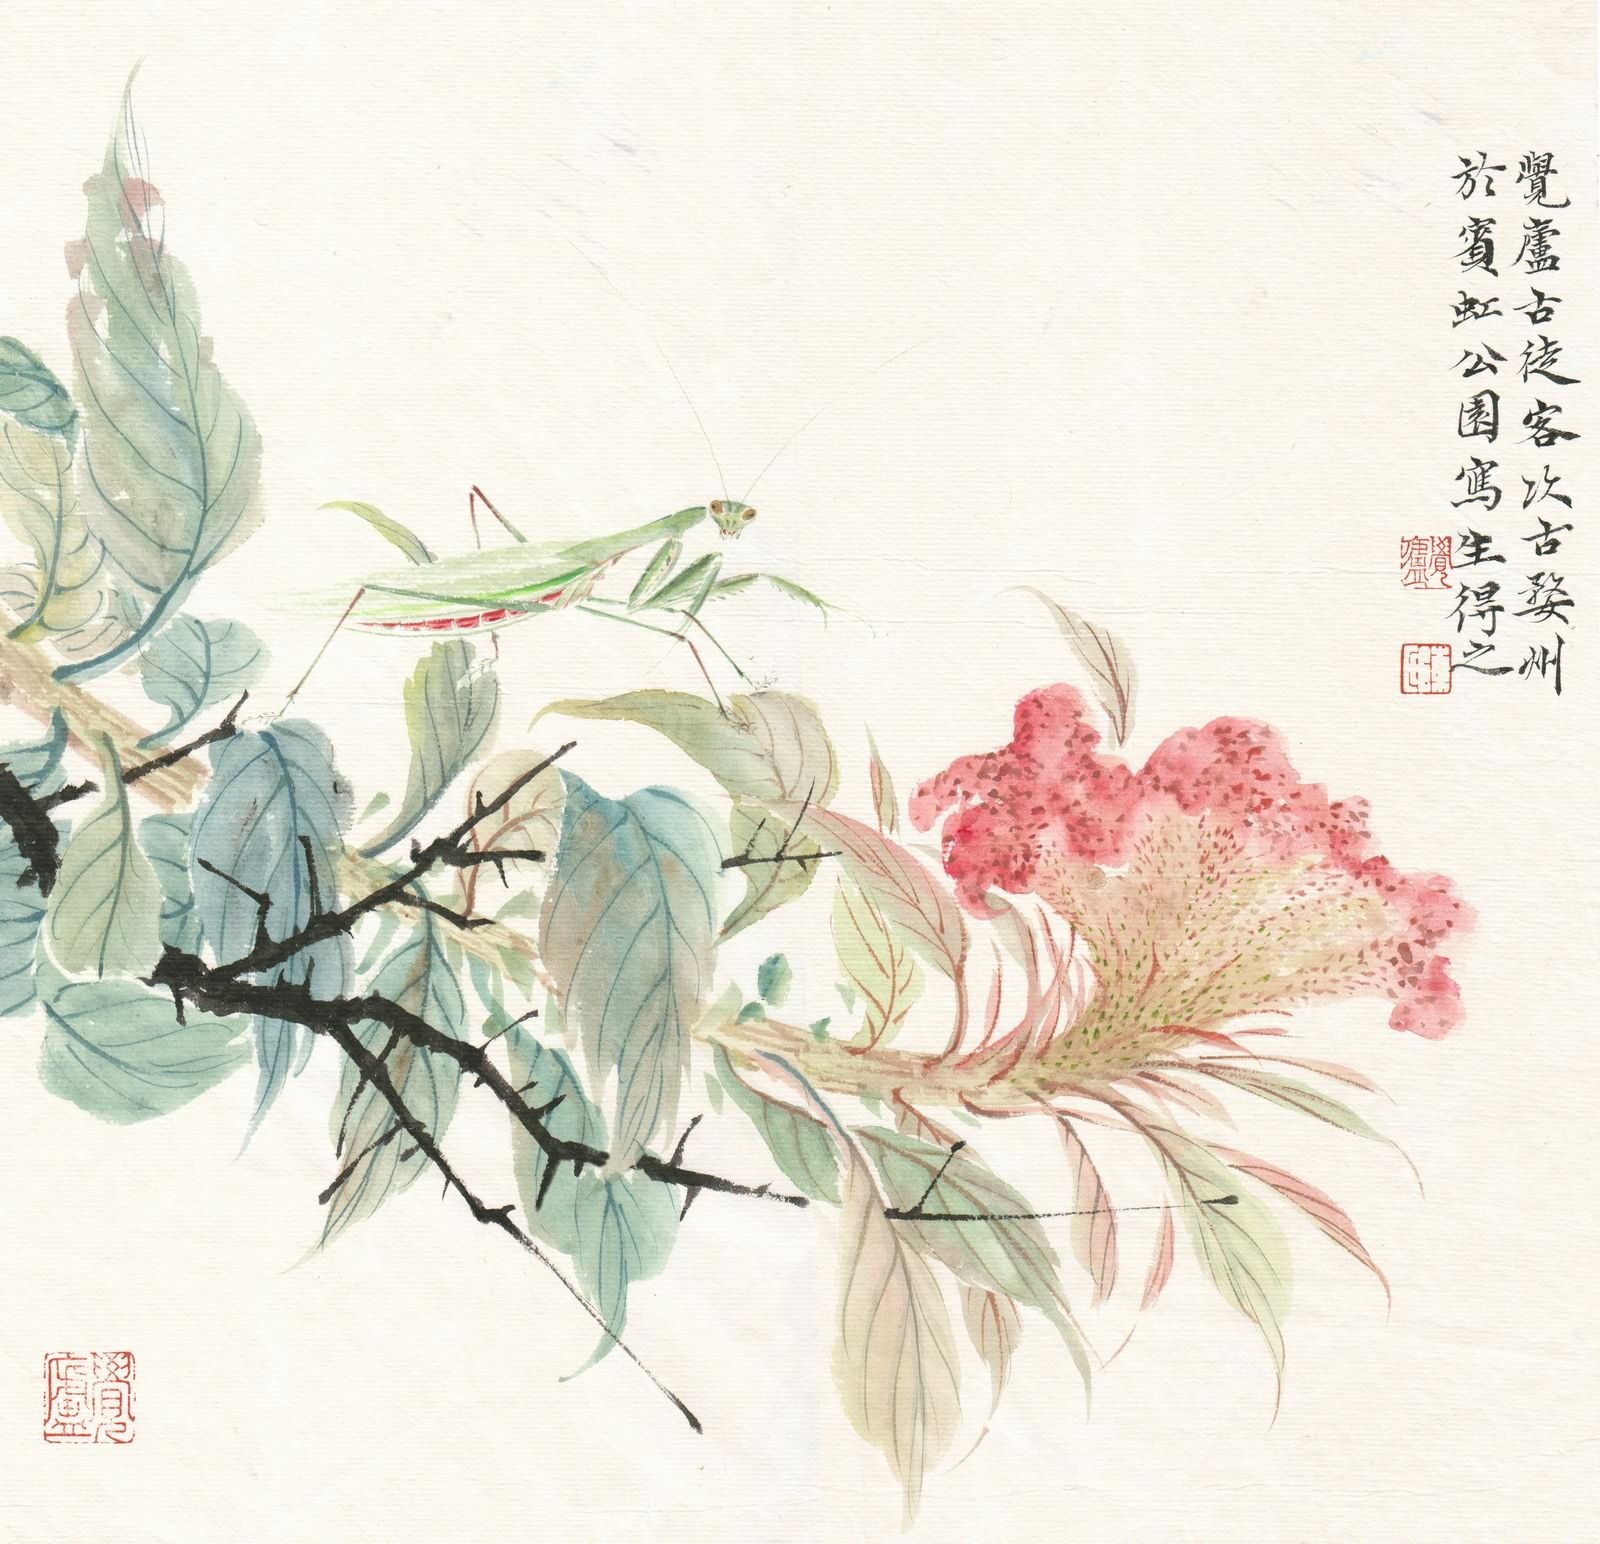 覺廬古徒客次古婺州
於賓虹公園寫生得之
覺廬
覺廬